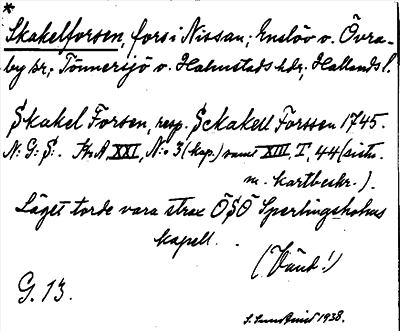 *
Skakelforsen, fors i Nissan; Enslöv o. Övra-
by sr; Tönnersjö o. Halmstads hdr; Hallands l.
Skakel Forsen, resp. Sckakell Forssen 1745.
N: G: S:. Kr A XXI, N:o 3 (kop.) samt XIII, T, 44 (avstn.
m. kartbeskr.).
Läget torde vara strax ÖSÖ Sperlingsholms
kapell.
(Vänd!)
G. 13.
1938.